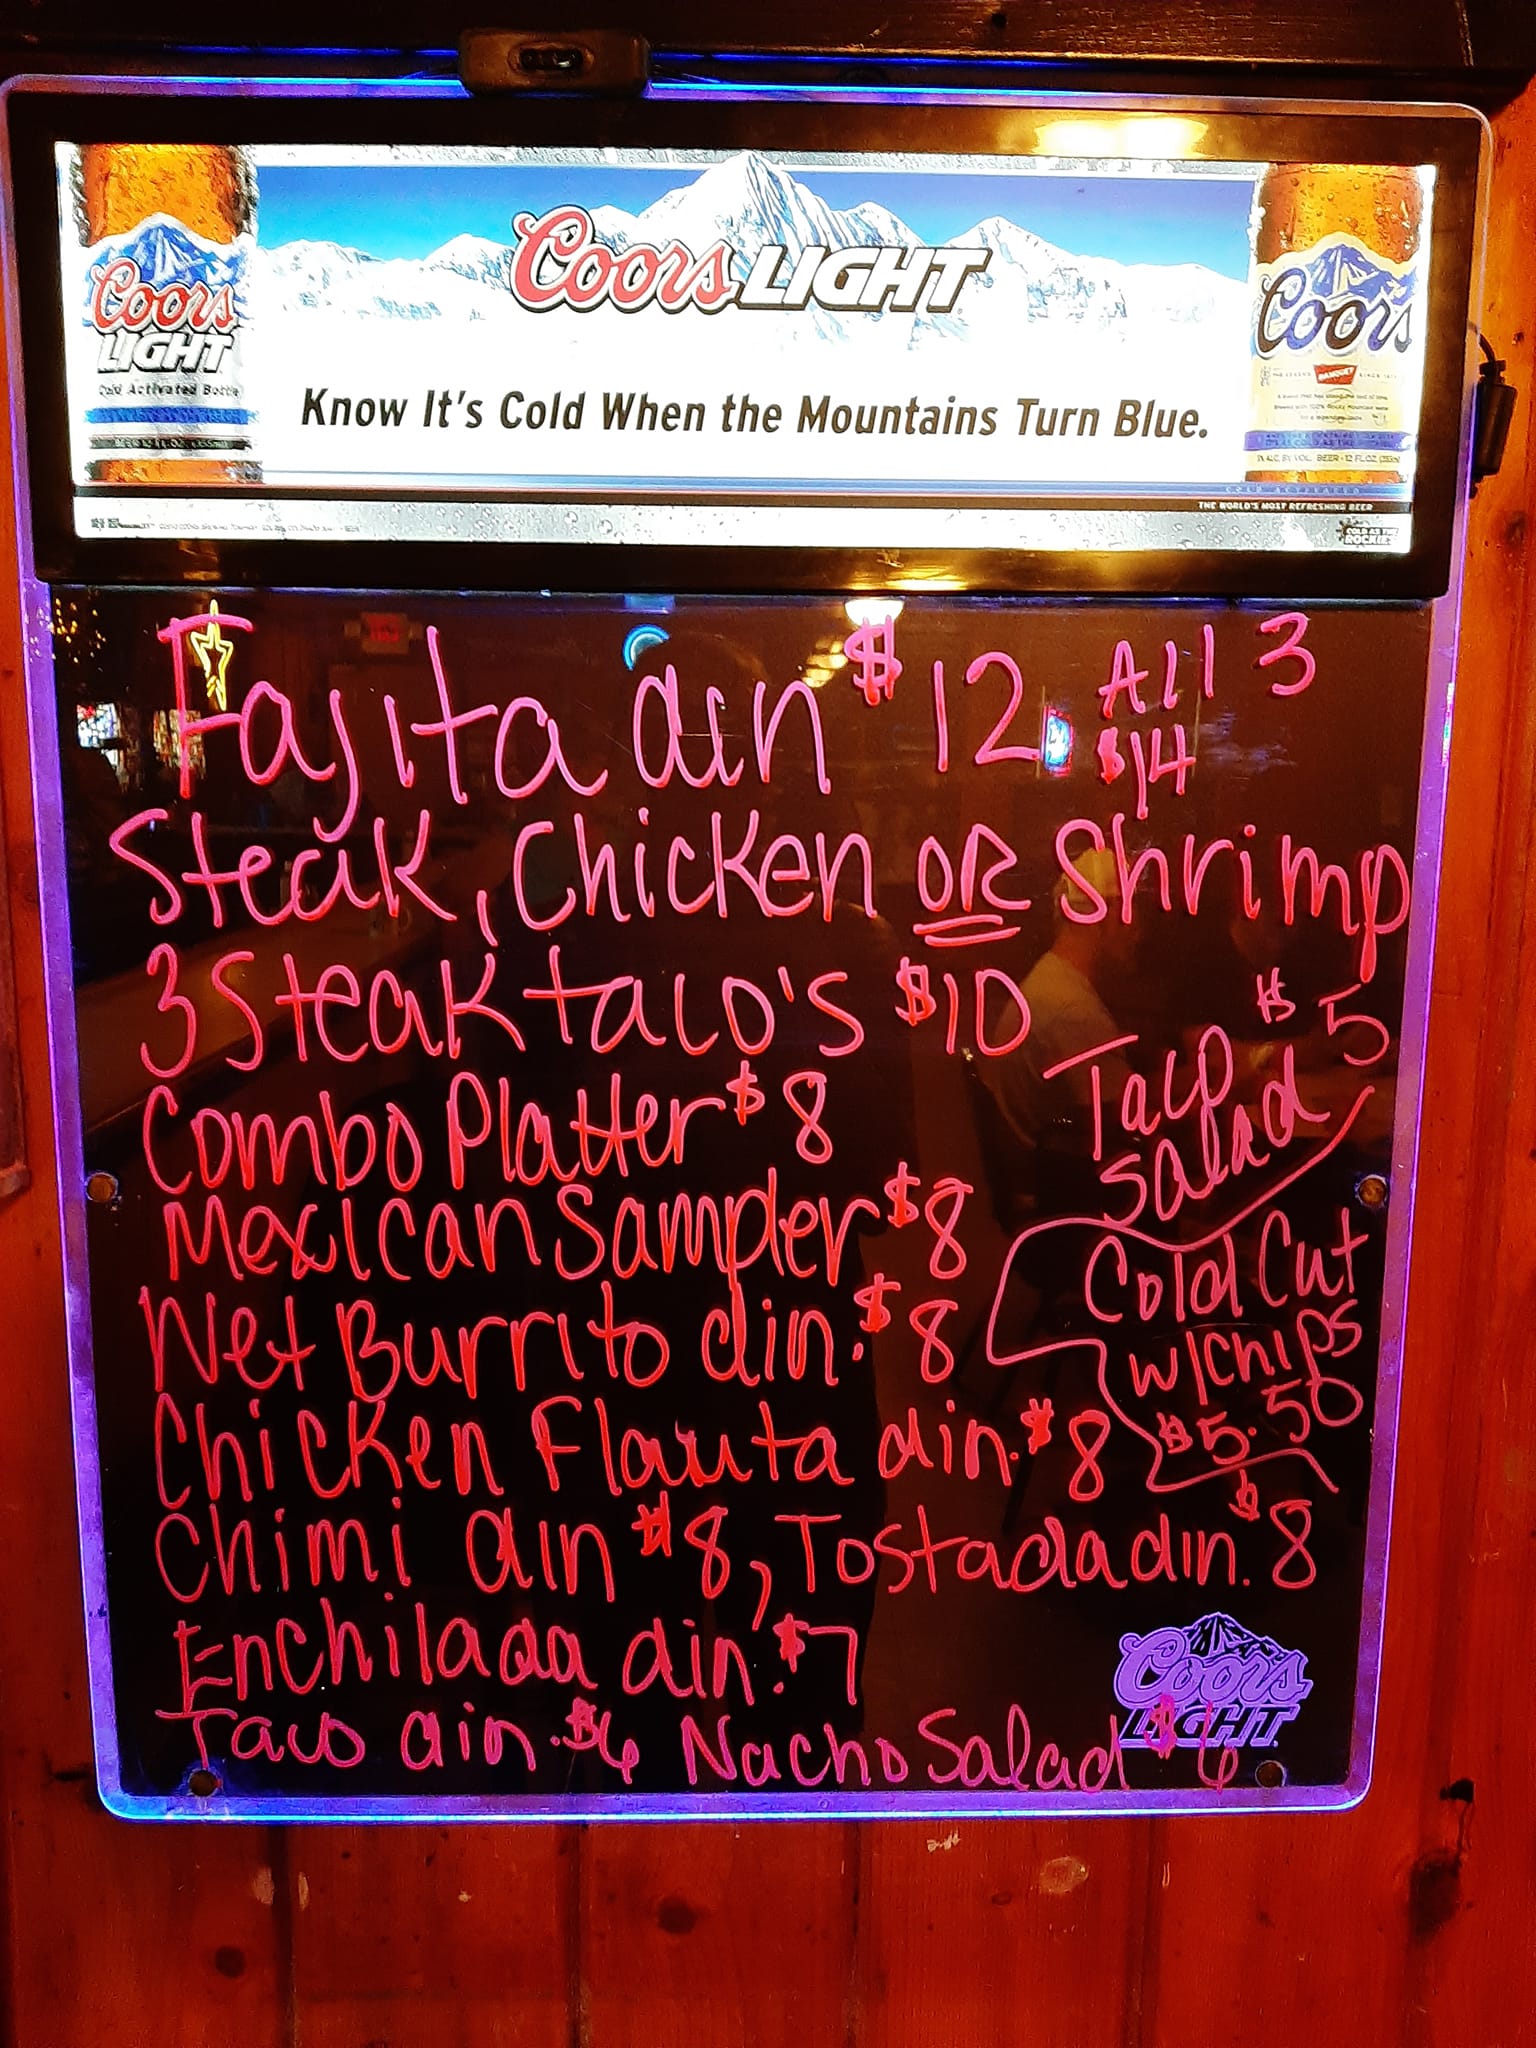 Coors LIGHT
Coors
LIGHT
Cold Activated Bottle
Coors
BANQUET
Know It's Cold When the Mountains Turn Blue.
THE WORLD'S MOST REFRESHING BEER
COLD AS THE
ROCKIES
Fajita din $12 All 3
$14
Steak, Chicken OR Shrimp
3 Steak taco's $10
Taco $5
Salad
Combo Platter $8
Mexican Sampler $8
Cold Cut
w/chips
$5.50
Wet Burrito din. $8
Chicken Flauta din. $8
Chimi din $8, Tostada din. $8
Enchilada din. $7
Taco din. $6 Nacho Salad $6
Coors
LIGHT